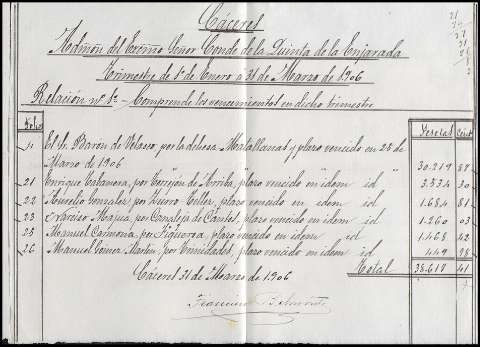 Cáceres
Admón del Excmo Señor Conde de la Quinta de la Enjarada
Trimestre de 1º de Enero a 31 de Marzo de 1906
Relación nº 1º - Comprende los vencimientos en dicho trimestre
Folios Pesetas Cént
El Sr. Barón de Velasco, por la dehesa Matallanas y plazo vencido en 25 de
Marzo de 1906 30.219 57
21 Enrique por Torrejón de Arriba, plazo vencido en idem id 3.534 30
22 Aurelio Gonzalez, por plazo vencido en idem id 1.684 81
23 Narciso por Canaleja de Cantos, plazo vencido en idem id 1.260 03
25 Manuel Carmona, por Figueroa, plazo vencido en idem id 1.468 42
26 Manuel Martin, por plazo vencido en idem id 449 98
Total 38.617 41
Cáceres 31 de Marzo de 1906